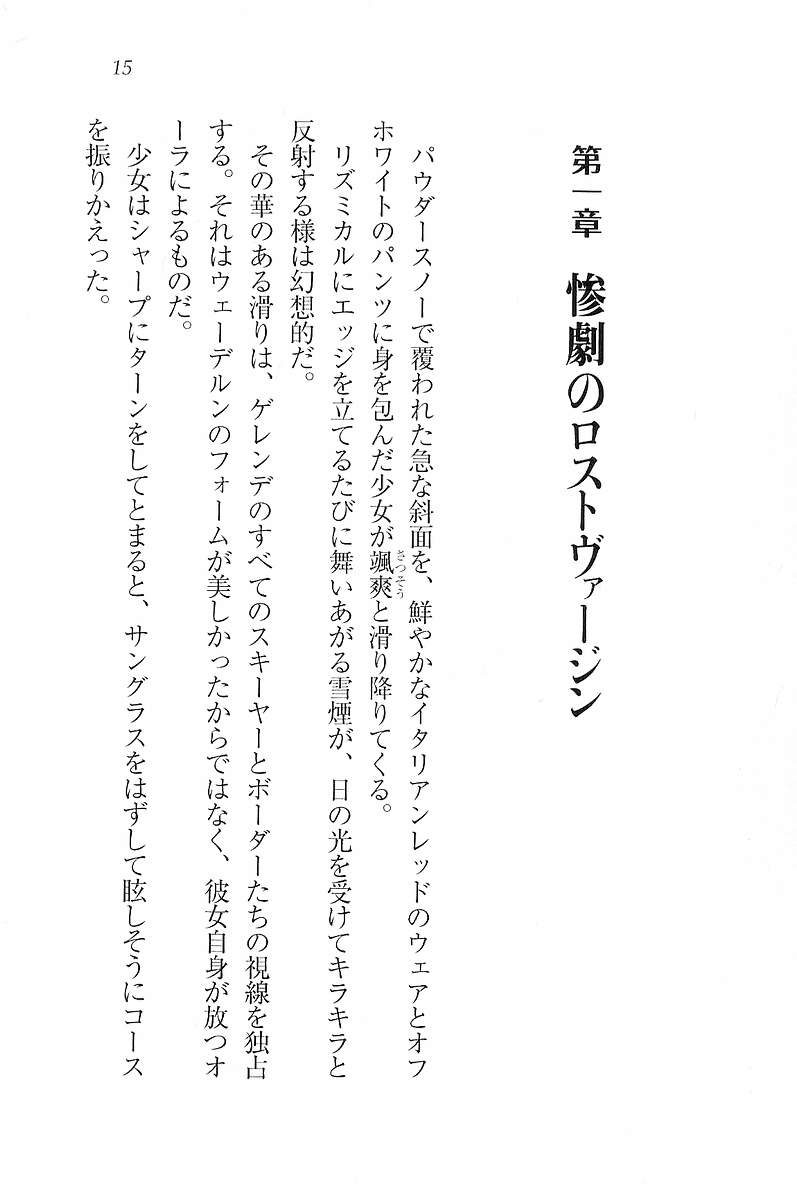 15
第一章 惨劇のロストヴァージン
パウダースノーで覆われた急な斜面を、鮮やかなイタリアンレッドのウェアとオフ
ホワイトのパンツに身を包んだ少女が颯爽と滑り降りてくる。
さっそう
リズミカルにエッジを立てるたびに舞いあがる雪煙が、日の光を受けてキラキラと
反射する様は幻想的だ。
その華のある滑りは、ゲレンデのすべてのスキーヤーとボーダーたちの視線を独占
する。それはウェーデルンのフォームが美しかったからではなく、彼女自身が放つオ
ーラによるものだ。
少女はシャープにターンをしてとまると、サングラスをはずして眩しそうにコース
を振りかえった。